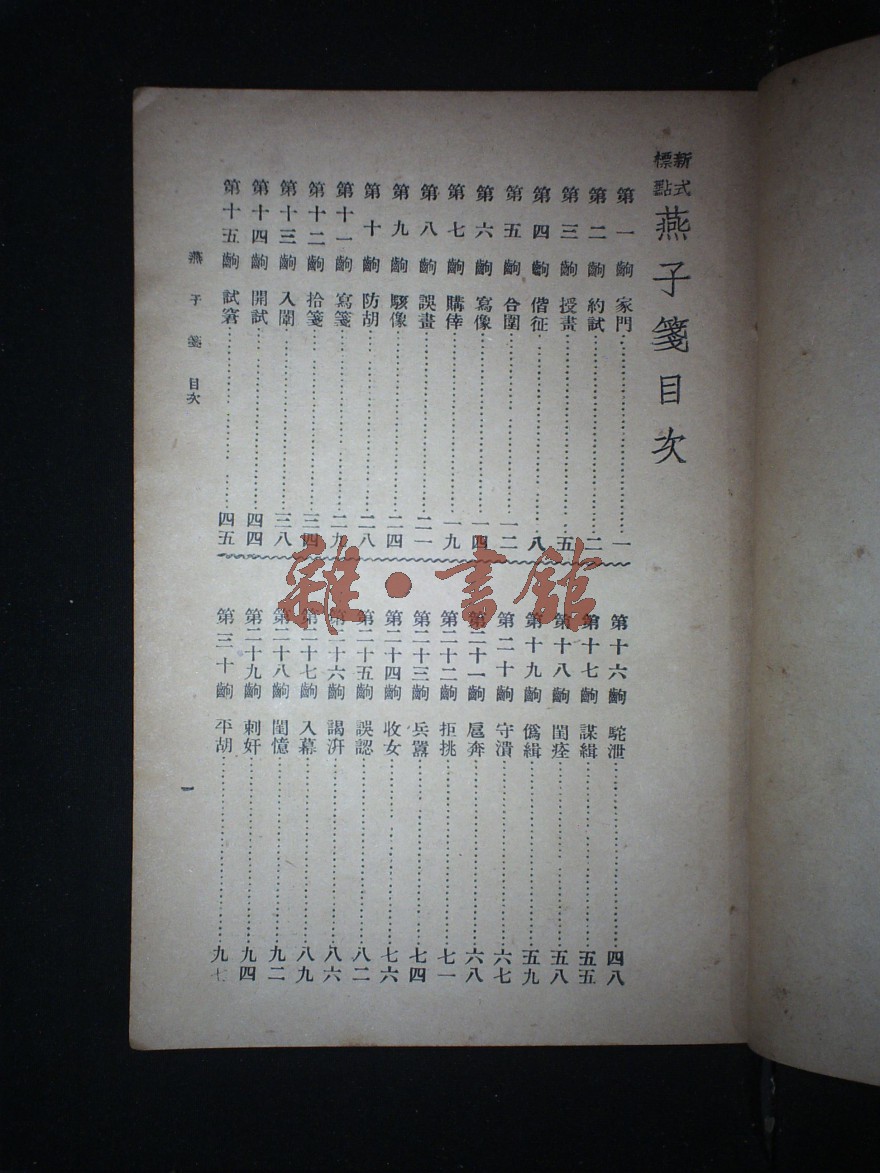 新式標點燕子箋目次
第一齣 家門……一
第二齣 約試……二
第三齣 授畫……五
第四齣 偕征……八
第五齣 合圍……一二
第六齣 寫像……一四
第七齣 購倖……一九
第八齣 誤畫……二一
第九齣 駭像……二四
第十齣 防胡……二八
第十一齣 寫箋……二九
第十二齣 拾箋……三四
第十三齣 入闈……三八
第十四齣 開試……四四
第十五齣 試窘……四五
第十六齣 駝泄……四八
第十七齣 謀緝……五五
第十八齣 閨痊……五八
第十九齣 僞緝……五九
第二十齣 守潰……六七
第二十一齣 扈奔……六八
第二十二齣 拒挑……七一
第二十三齣 兵囂……七四
第二十四齣 收女……七六
第二十五齣 誤認……八二
第二十六齣 謁汧……八六
第二十七齣 入幕……八九
第二十八齣 閨憶……九二
第二十九齣 刺奸……九四
第三十齣 平胡……九七
燕子箋 目次
一
雜·書館